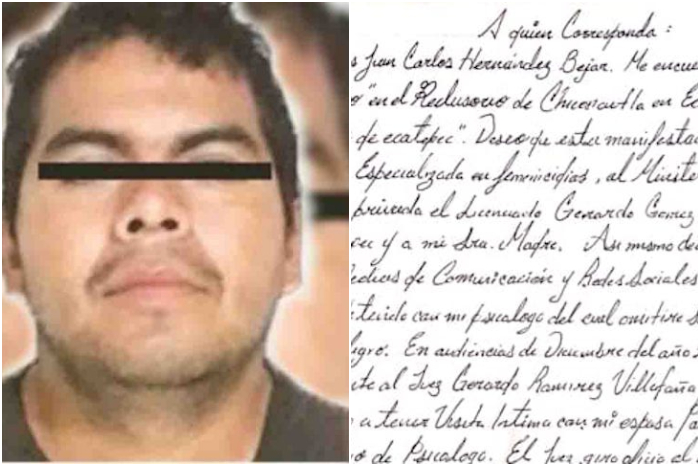 A quien Corresponda :
s Juan Carlos Hernández Bejar. Me encue
o" en el Reclusorio de Chiconautla en Ec
de ecatepec". Deseo que esta manifesta
Especializada en feminicidios, al Ministe
privada el Licenciado Gerardo Gomez
y a mi Sra. Madre. Asi mismo de
Medios de Comunicación y Redes Sociales
tenido con mi psicologo del cual omitire s
ligro. En audiencias de Diciembre del año
te al Juez Gerardo Ramirez Villafaña
a tener Visita Intima con mi esposa
o de Psicologo. El Juez giro oficio al